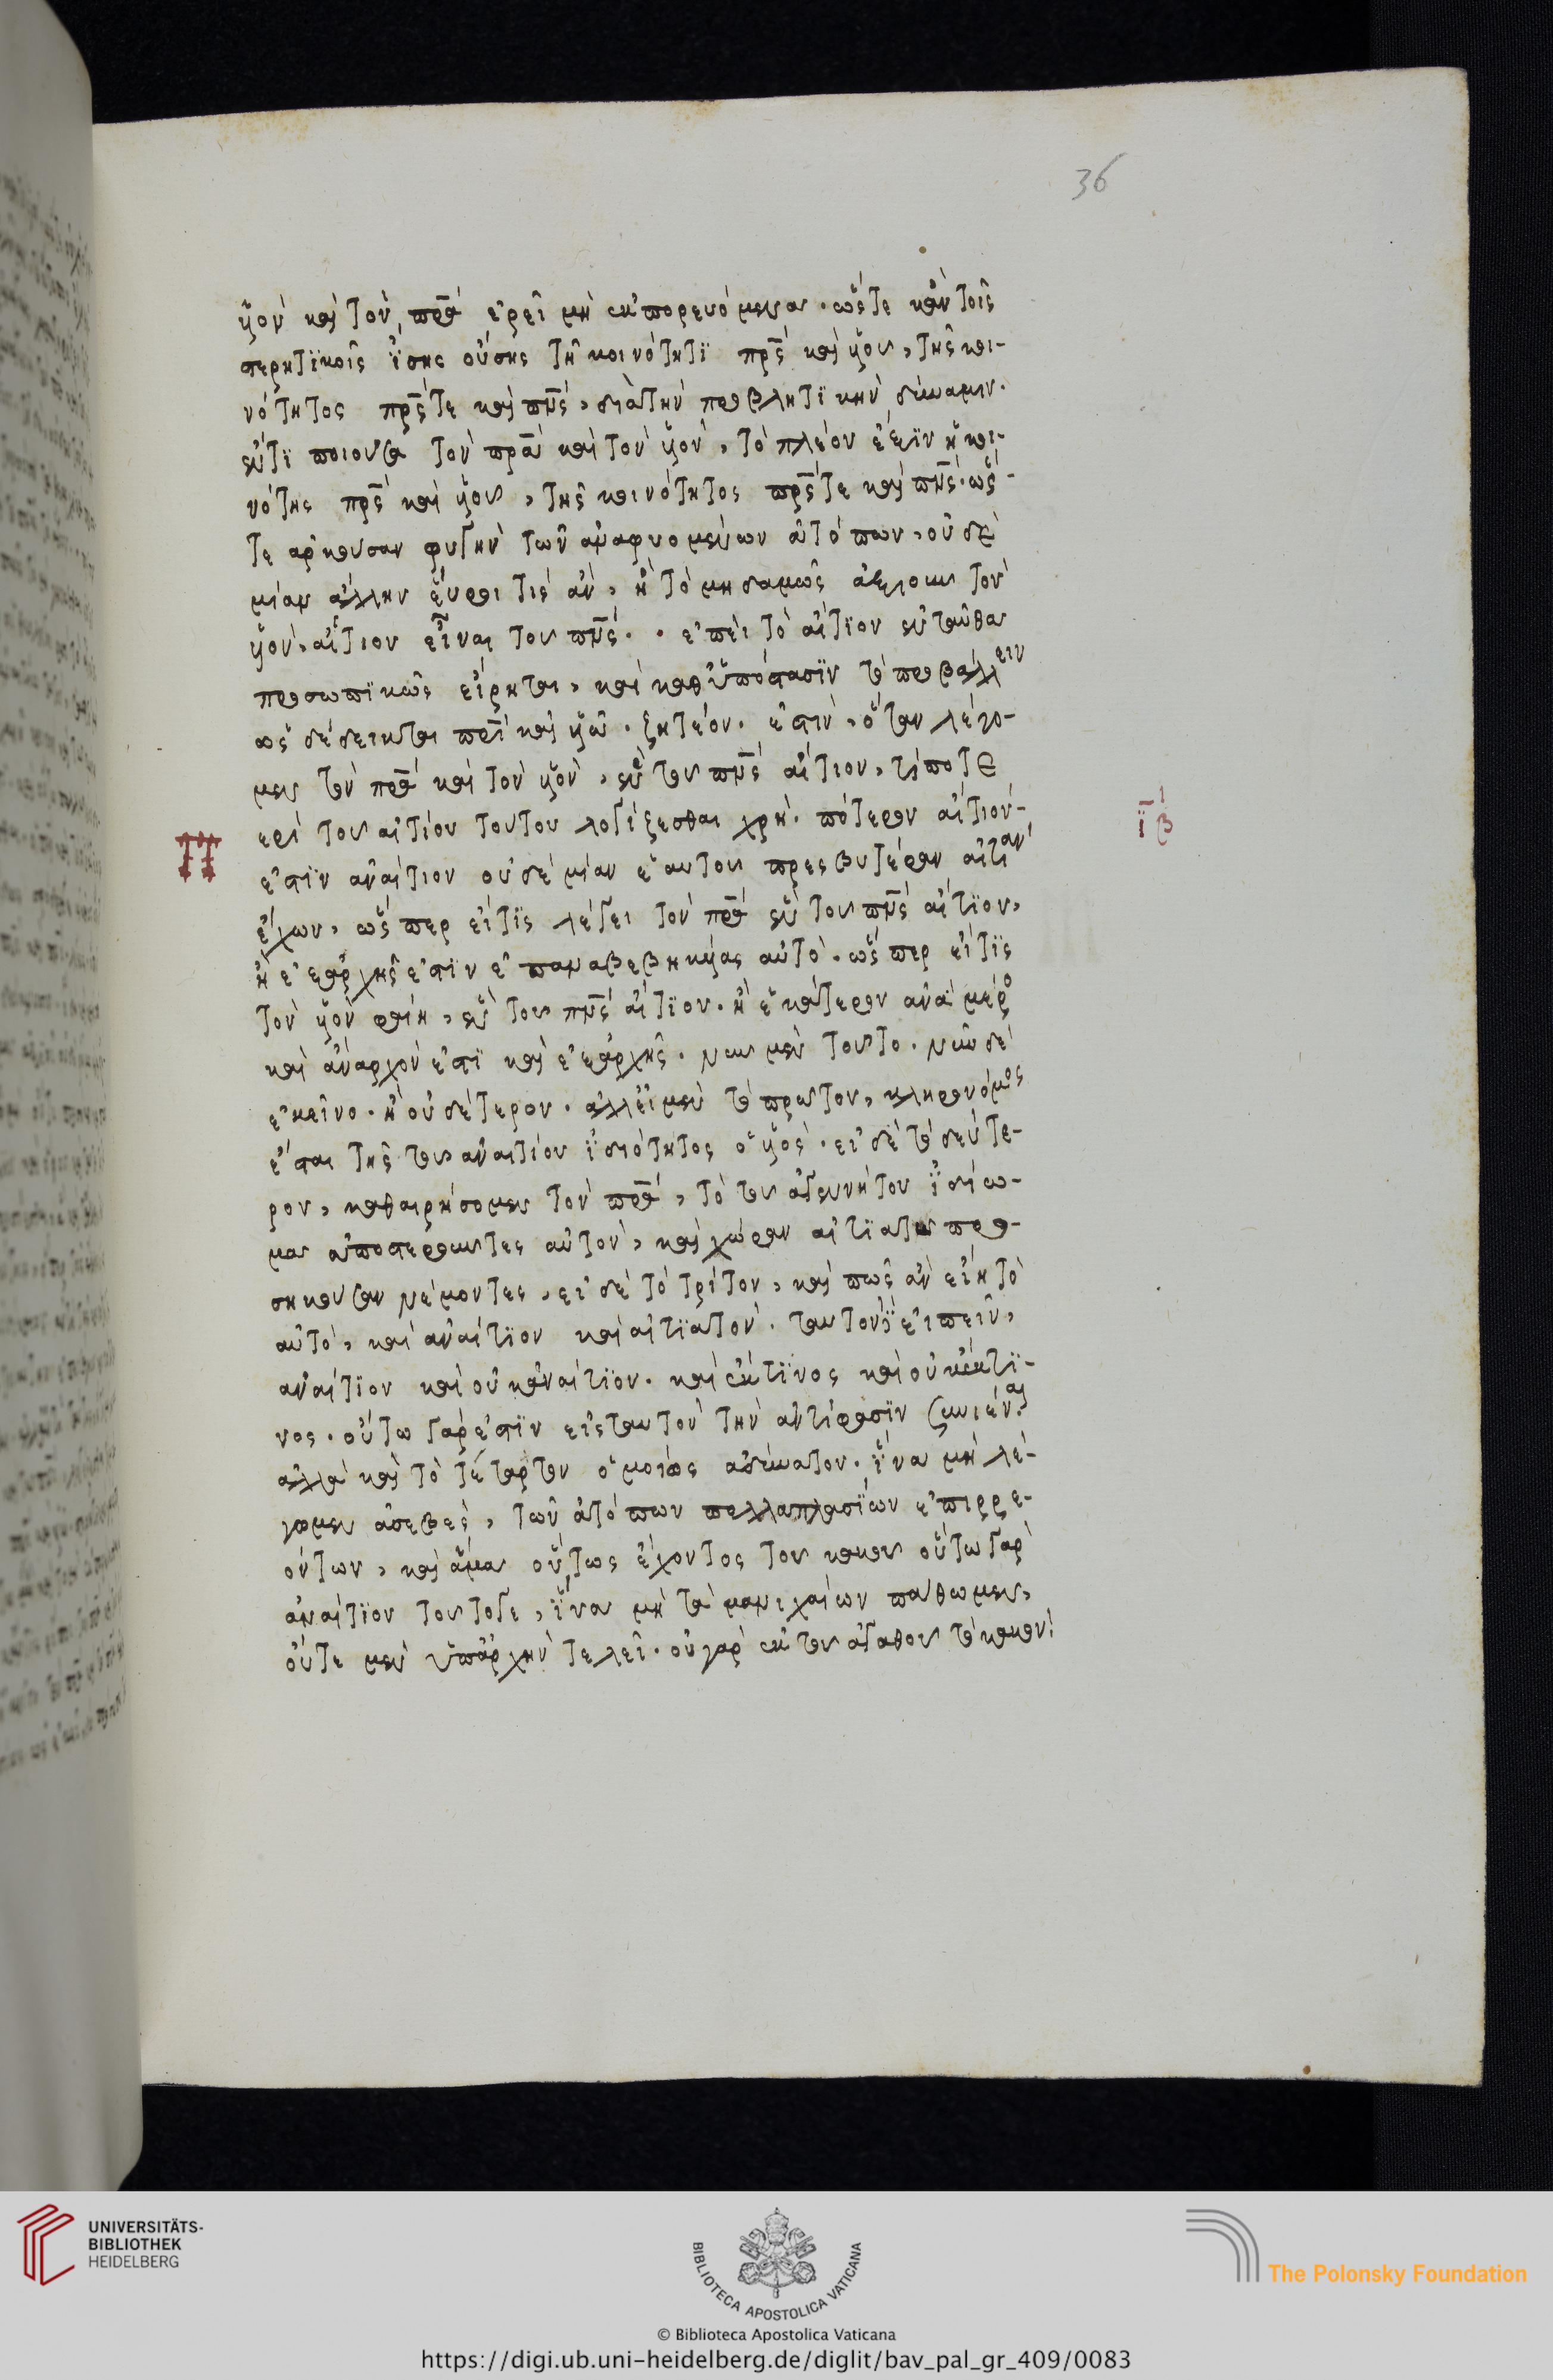 36
υἱὸν καὶ τὸν πρα ἐρεῖ μὴ ἐκπορευόμενα. ὥστε κἂν τοῖς
στερητϊκοῖς ἴσης οὔσης τῇ κοινότητϊ πρς καὶ υἱοῦ, τῆς κοι-
νότητος πρς τε καὶ πνς, διὰ τὴν προβλητϊκὴν δύναμιν.
ποιοῦσα τὸν πρα καὶ τὸν υἱὸν, τὸ πλέον ἕξειν ἡ κοι-
νότης πρς καὶ υἱοῦ, τῆς κοινότητος πρς τε καὶ πνς. ὥσ-
τε ἀρκοῦσαν φυγὴν τῶν ἀναφυομένων ἀτόπων, οὐδε
μίαν ἄλλην εὕροι τις ἂν, ἢ τὸ μηδαμῶς ἀξιοῦν τὸν
υἱὸν, αἴτιον εἶναι τοῦ πνς. ἐπεὶ τὸ αἴτϊον ἐνταῦθα
προσωπϊκῶς εἴρηται, καὶ καθ' ὑπόστασϊν τὸ προβάλλειν
ὡς δέδεικται πρϊ καὶ υἱῶ. ζητέον ἐστὶν, ὅταν λέγο-
μεν τὸν πρα καὶ τὸν υἱὸν, ἓν τοῦ πνς αἴτιον, τί ποτε
ερὶ τοῦ αἰτίου τούτου λογίζεσθαι χρή. πότερον αἴτιόν-
Π
ϊβ
ἐστϊν ἀναίτιον οὐδεμίαν ἑαυτοῦ πρεσβυτέραν αἰτίαν
ἔχων, ὥσπερ εἴ τϊς λέγει τὸν πρα ἓν τοῦ πνς αἴτϊον,
ἢ ἐξ ἀρχῆς ἐστϊν ἐπαναβεβηκυίας αὐτό. ὥσπερ εἴ τϊς
τὸν υἱὸν φαίη, ἓν τοῦ πνς αἴτϊον. ἢ ἑκάτερον ἀνὰ μέρος
καὶ ἄναρχόν ἐστϊ καὶ ἐξ ἀρχῆς. νῦν μὲν τοῦτο. νῦν δὲ
ἐκεῖνο. ἢ οὐδέτερον. ἀλλ' εἰ μὲν τὸ πρῶτον, κληρονόμος
ἔσται τῆς τοῦ ἀναιτίου ϊδιότητος ὁ υἱός. εἰ δὲ τὸ δεύτε-
ρον, καθαιρήσομεν τὸν πρα, τὸ τοῦ ἀγεννήτου ϊδίω-
μα ἀποστεροῦντες αὐτὸν, καὶ χώραν αἰτϊατῶ προ-
σήκουσαν νέμοντες. εἰ δὲ τὸ τρίτον, καὶ πῶς ἂν εἴη τὸ
αὐτὸ, καὶ ἀναίτϊον καὶ αἰτϊατόν. ταυτὸν εἰπεῖν,
ἀναίτϊον καὶ οὐκ ἀναίτϊον. καὶ ἔκ τϊνος καὶ οὐκ ἔκ τϊ-
νος. οὕτω γάρ ἐστϊν εἰς ταυτὸν τὴν ἀντίφασϊν συνιέναι
ἀλλὰ καὶ τὸ τέταρτον ὁμοίως ἀδύνατον. ἵνα μὴ λέ-
γωμεν ἀσεβὲς, τῶν ἀτόπων πολλαπλασϊων ἐπιρρε-
όντων, καὶ ἅμα οὕτως ἔχοντος τοῦ κακοῦ οὕτω γὰρ
ἀναίτϊον τοῦτό γε, ἵνα μὴ τὰ μανιχαίων πάθωμεν,
οὔτε μὲν ὑπ' ἀρχὴν τελεῖ. οὐ γὰρ ἐκ τοῦ ἀγαθοῦ τὸ κακόν
UNIVERSITÄTS-
BIBLIOTHEK
HEIDELBERG
BIBLIOTECA APOSTOLICA VATICANA
The Polonsky Foundation
© Biblioteca Apostolica Vaticana
https://digi.ub.uni-heidelberg.de/diglit/bav_pal_gr_409/0083